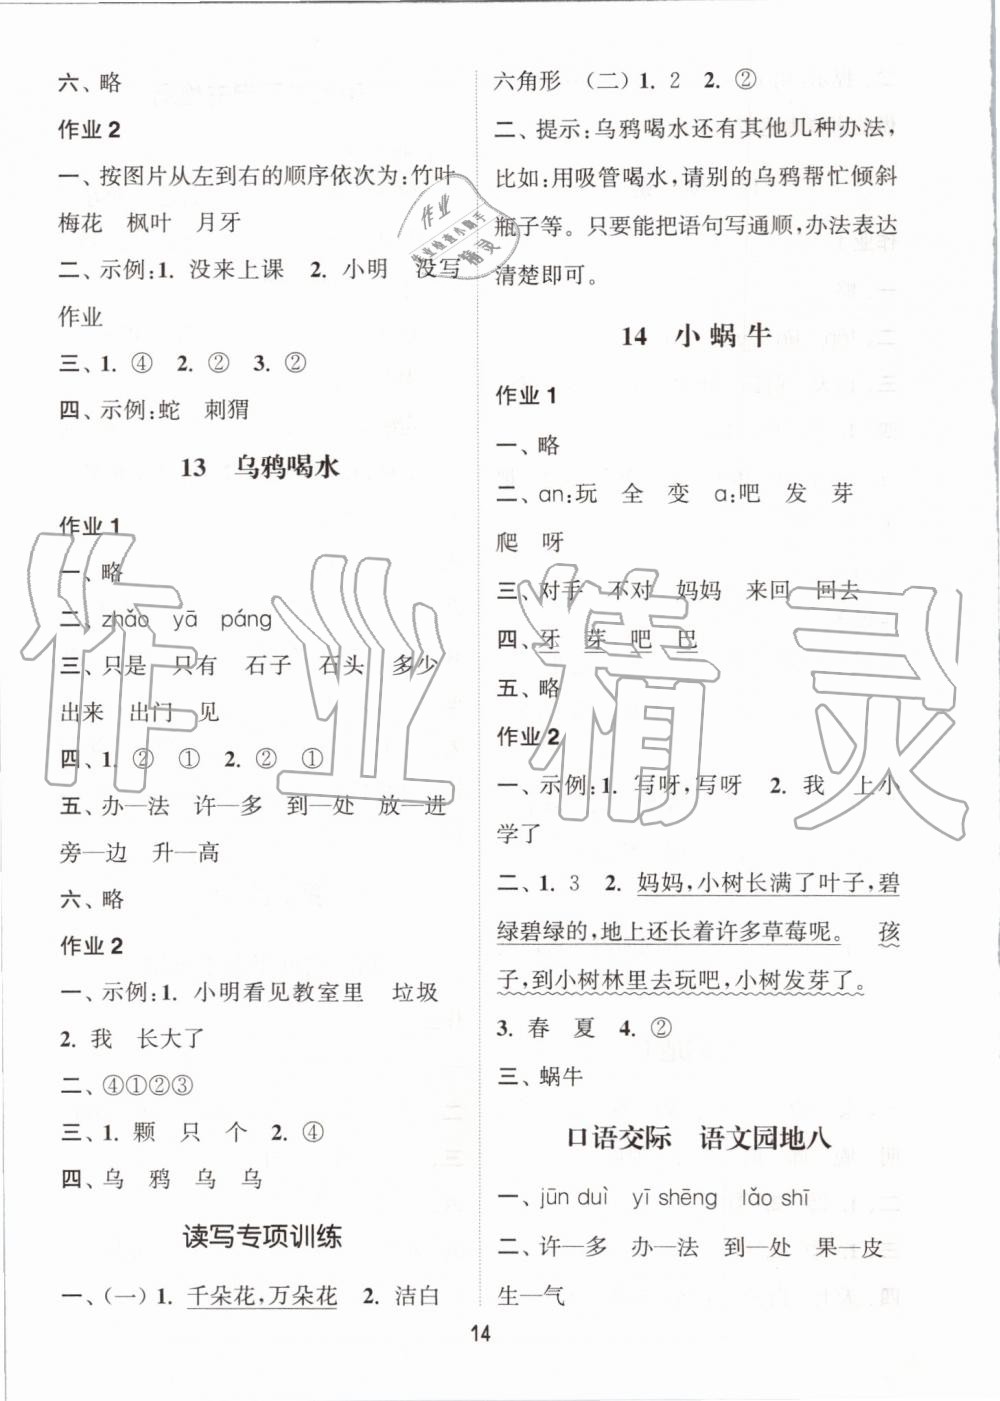 六、略
作业 2
一、按图片从左到右的顺序依次为:竹叶
梅花 枫叶 月牙
二、示例:1. 没来上课 2. 小明 没写
作业
三、1. ④ 2. ② 3. ②
四、示例:蛇 刺猬
13 乌鸦喝水
作业 1
一、略
二、zhǎo yā páng
三、只是 只有 石子 石头 多少
出来 出门 见
四、1. ② ① 2. ② ①
五、办—法 许—多 到—处 放—进
旁—边 升—高
六、略
作业 2
一、示例:1. 小明看见教室里 垃圾
2. 我 长大了
二、④①②③
三、1. 颗 只 个 2. ④
四、乌 鸦 乌 乌
读写专项训练
一、(一) 1. 千朵花,万朵花 2. 洁白
六角形 (二) 1. 2 2. ②
二、提示:乌鸦喝水还有其他几种办法,
比如:用吸管喝水,请别的乌鸦帮忙倾斜
瓶子等。只要能把语句写通顺,办法表达
清楚即可。
14 小蜗牛
作业 1
一、略
二、an:玩 全 变 a:吧 发 芽
爬 呀
三、对手 不对 妈妈 来回 回去
四、牙 芽 吧 巴
五、略
作业 2
一、示例:1. 写呀,写呀 2. 我 上小
学了
二、1. 3 2. 妈妈,小树长满了叶子,碧
绿碧绿的,地上还长着许多草莓呢。 孩
子,到小树林里去玩吧,小树发芽了。
3. 春 夏 4. ②
三、蜗牛
口语交际 语文园地八
一、jūn duì yī shēng lǎo shī
二、许—多 办—法 到—处 果—皮
生—气
14
作业精灵